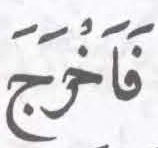 فَاَخْرَجَ